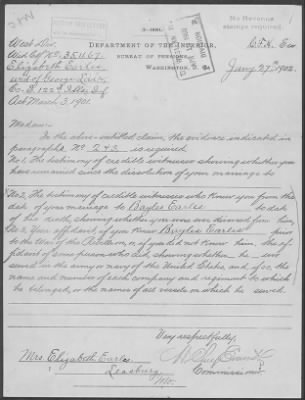 3-084.
No Revenue
stamp required.
West Div.
DEPARTMENT OF THE INTERIOR,
Elizabeth Earles
BUREAU OF PENSIONS,
WASHINGTON,
Jany 27th, 1902.
wid of George
Co. D. 122d Ills Inf
Act March 3, 1901.
Madam:
In the above-entitled claim, the evidence indicated in
paragraphs No. 2 & 3 is required
No 1. The testimony of credible witnesses showing whether you
have remained since the dissolution of your marriage to
No 2. The testimony of credible witnesses who knew you from the
date of your marriage to Bayles Earles to date
of his death, showing whether you were ever divorced from him
No 3. Your affidavit if you knew Bayles Earles prior
to the War of the Rebellion, or, if you did not know him, the af-
fidavit of some person who did, showing whether he ever
served in the army or navy of the United States, and if so, the
name and number of each company and regiment to which
he belonged, or the names of all vessels on which he served.
Very respectfully,
Commissioner.
Mrs. Elizabeth Earles
Leasburg
Mo.